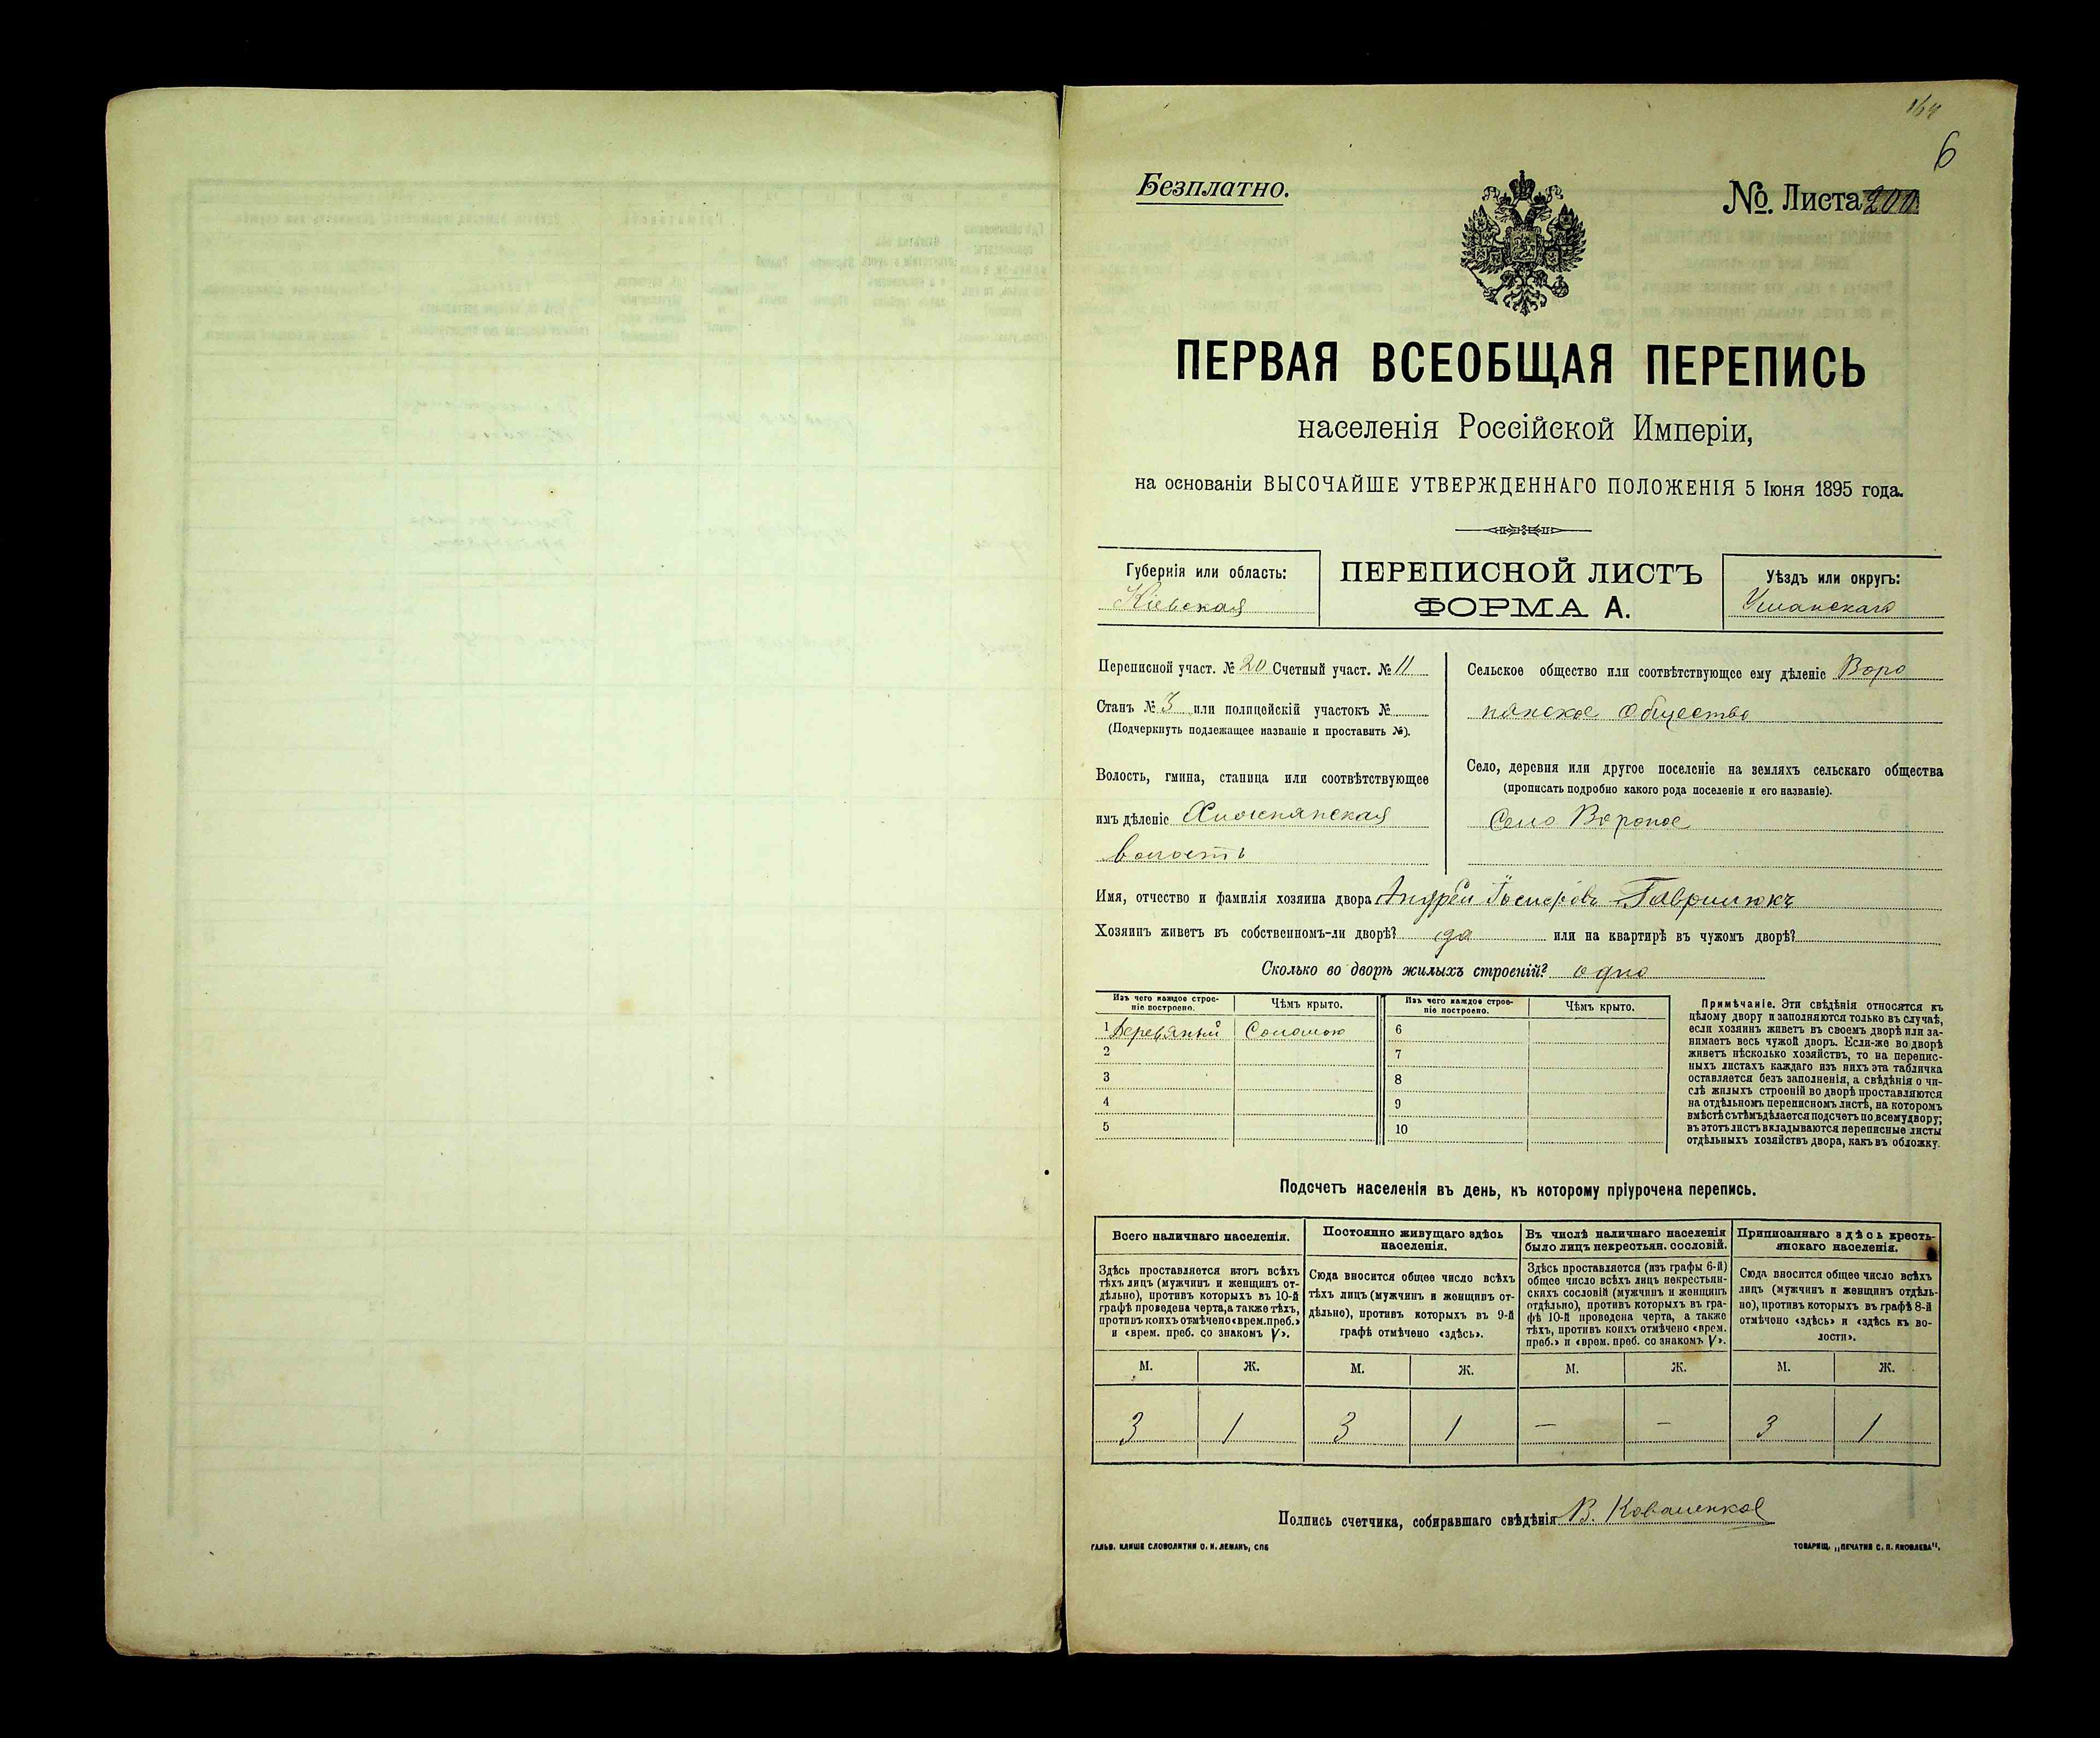 6
Безплатно.
№. Листа 200
ПЕРВАЯ ВСЕОБЩАЯ ПЕРЕПИСЬ
населенія Россійской Имперіи,
на основаніи ВЫСОЧАЙШЕ УТВЕРЖДЕННАГО ПОЛОЖЕНІЯ 5 Іюня 1895 года.
Губернія или область:
Кіевская
ПЕРЕПИСНОЙ ЛИСТЪ
ФОРМА А.
Уѣздъ или округъ:
Уманскаго
Переписной участ. № 20 Счетный участ. № 11
Станъ № 3 или полицейскій участокъ №
(Подчеркнуть подлежащее названіе и проставить №).
Волость, гмина, станица или соотвѣтствующее
имъ дѣленіе
волость
Сельское общество или соотвѣтствующее ему дѣленіе Воро
нянское Общество
Село, деревня или другое поселеніе на земляхъ сельскаго общества
(прописать подробно какого рода поселеніе и его названіе).
Село Вороное
Имя, отчество и фамилія хозяина двора Андрей Гаврилюкъ
Хозяинъ живетъ въ собственномъ-ли дворѣ? да или на квартирѣ въ чужомъ дворѣ?
Сколько во дворѣ жилыхъ строеній? одно
Изъ чего каждое строе-
ніе построено.
Чѣмъ крыто.
Изъ чего каждое строе-
ніе построено.
Чѣмъ крыто.
1 Деревяный Соломою 6
2 7
3 8
4 9
5 10
Примѣчаніе. Эти свѣдѣнія относятся къ
цѣлому двору и заполняются только въ случаѣ,
если хозяинъ живетъ въ своемъ дворѣ или за-
нимаетъ весь чужой дворъ. Если-же во дворѣ
живетъ нѣсколько хозяйствъ, то на перепис-
ныхъ листахъ каждаго изъ нихъ эта табличка
оставляется безъ заполненія, а свѣдѣнія о чи-
слѣ жилыхъ строеній во дворѣ проставляются
на отдѣльномъ переписномъ листѣ, на которомъ
вмѣстѣ съ тѣмъ дѣлается подсчетъ по всему двору;
въ этотъ листъ вкладываются переписные листы
отдѣльныхъ хозяйствъ двора, какъ въ обложку.
Подсчетъ населенія въ день, къ которому пріурочена перепись.
Всего наличнаго населенія.
Здѣсь проставляется итогъ всѣхъ
тѣхъ лицъ (мужчинъ и женщинъ от-
дѣльно), противъ которыхъ въ 10-й
графѣ проведена черта, а также тѣхъ,
противъ коихъ отмѣчено «врем. преб.»
и «врем. преб. со знакомъ V».
Постоянно живущаго здѣсь
населенія.
Сюда вносится общее число всѣхъ
тѣхъ лицъ (мужчинъ и женщинъ от-
дѣльно), противъ которыхъ въ 9-й
графѣ отмѣчено «здѣсь».
Въ числѣ наличнаго населенія
было лицъ некрестьян. сословій.
Здѣсь проставляется (изъ графы 6-й)
общее число всѣхъ лицъ некрестьян-
скихъ сословій (мужчинъ и женщинъ
отдѣльно), противъ которыхъ въ гра-
фѣ 10-й проведена черта, а также
тѣхъ, противъ коихъ отмѣчено «врем.
преб.» и «врем. преб. со знакомъ V».
Приписаннаго здѣсь кресть-
янскаго населенія.
Сюда вносится общее число всѣхъ
лицъ (мужчинъ и женщинъ отдѣль-
но), противъ которыхъ въ графѣ 8-й
отмѣчено «здѣсь» и «здѣсь къ во-
лости».
М. Ж. М. Ж. М. Ж. М. Ж.
3 1 3 1 — — 3 1
Подпись счетчика, собиравшаго свѣдѣнія В.
ГАЛЬВ. КЛИШЕ СЛОВОЛИТНИ О. И. ЛЕМАНЪ, СПБ
ТОВАРИЩ. „ПЕЧАТНЯ С. П. ЯКОВЛЕВА".